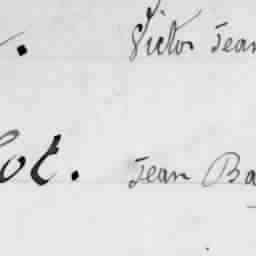 . Victor Jean
ot. Jean Ba